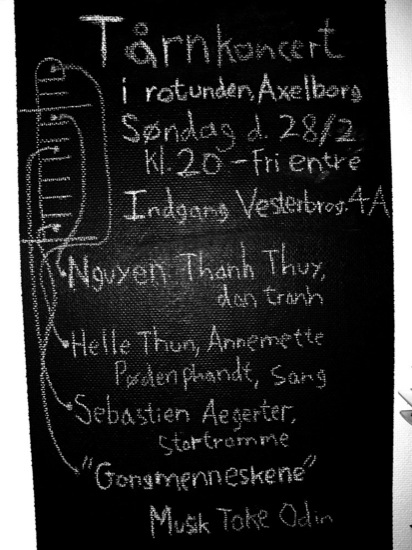 Tårnkoncert
i rotunden, Axelborg
Søndag d. 28/2
kl. 20 - Fri entré
Indgang Vesterbrog. 4A
Nguyen Thanh Thuy,
dan tranh
Helle Thun, Annemette
Pødenphandt, Sang
Sebastien Aegerter,
stortromme
"Gongmenneskene"
Musik Toke Odin